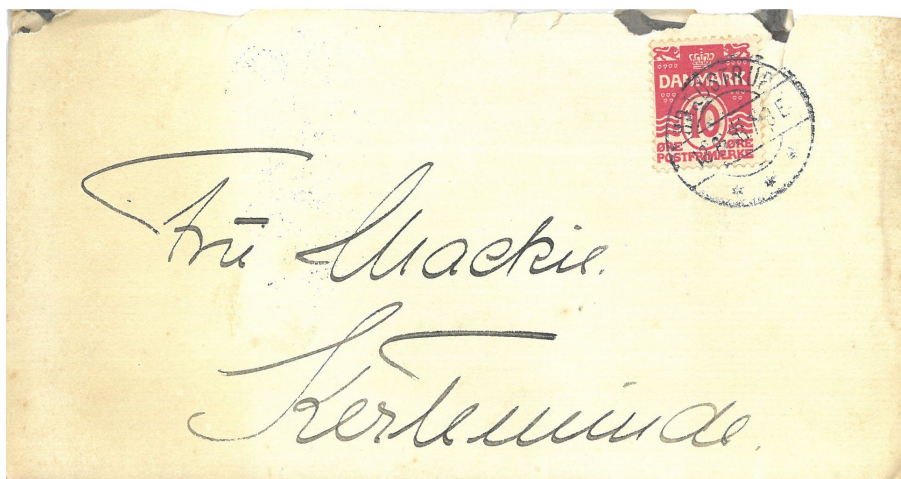 DANMARK
10
ØRE ØRE
POSTFRIMÆRKE
Fru Mackie.
Kerteminde.